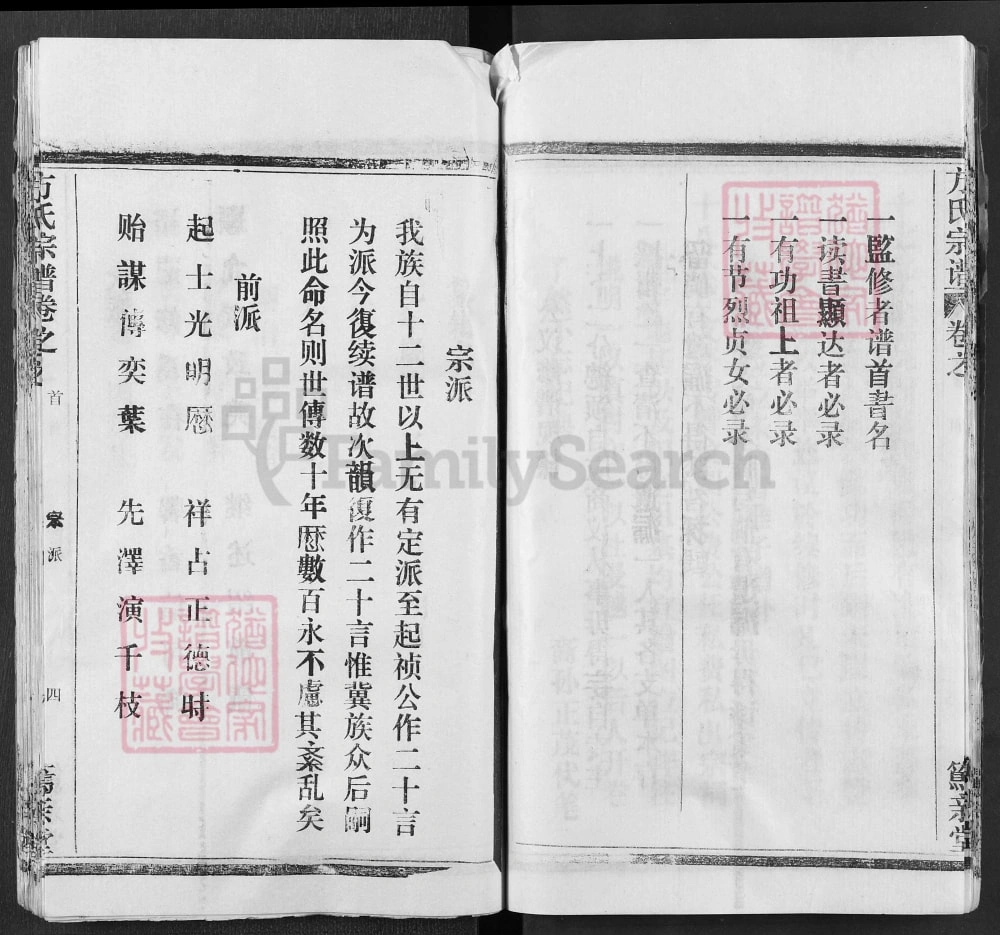 方氏宗谱
卷之
篤亲堂
一監修者谱首書名
一读書顯达者必录
一有功祖上者必录
一有节烈贞女必录
宗派
我族自十二世以上无有定派至起祯公作二十言
为派今復续谱故次韻復作二十言惟冀族众后嗣
照此命名则世傳数十年歷數百永不慮其紊乱矣
前派
起士光明歷 祥占正德時
贻謀傳奕葉 先澤演千枝
方氏宗谱卷之
首
宗派
四
FamilySearch